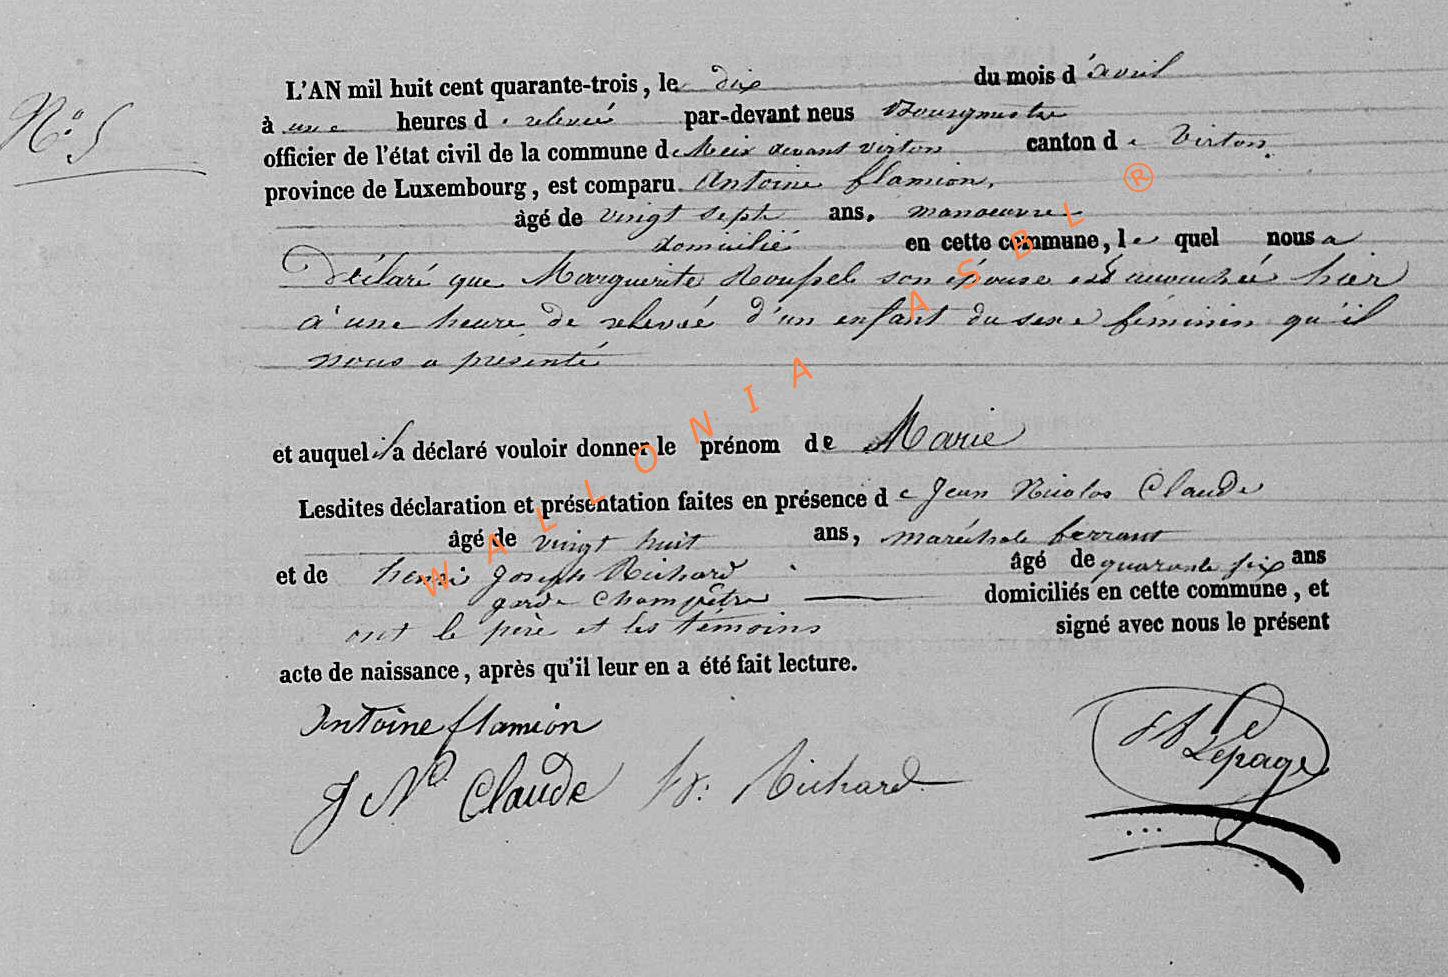 N.° 5
L'AN mil huit cent quarante-trois, le dix du mois d'avril
à une heures de relevée par-devant nous Bourgmestre
officier de l'état civil de la commune de Meix devant virton canton de Virton,
province de Luxembourg, est comparu Antoine flamion,
âgé de vingt sept ans, manoeuvre
domicilié en cette commune, le quel nous a
Déclaré que Marguerite Roussel son épouse est accouchée hier
à une heure de relevée d'un enfant du sexe féminin qu'il
nous a présenté
et auquel il a déclaré vouloir donner le prénom de Marie
Lesdites déclaration et présentation faites en présence de Jean Nicolas Claude
âgé de vingt huit ans, maréchale ferrant
et de henri Joseph Richard âgé de quarante six ans
garde Champêtre domiciliés en cette commune, et
ont le père et les témoins signé avec nous le présent
acte de naissance, après qu'il leur en a été fait lecture.
Antoine flamion
J Ns Claude h. j. Richard
Lepage
WALLONIA ASBL ®